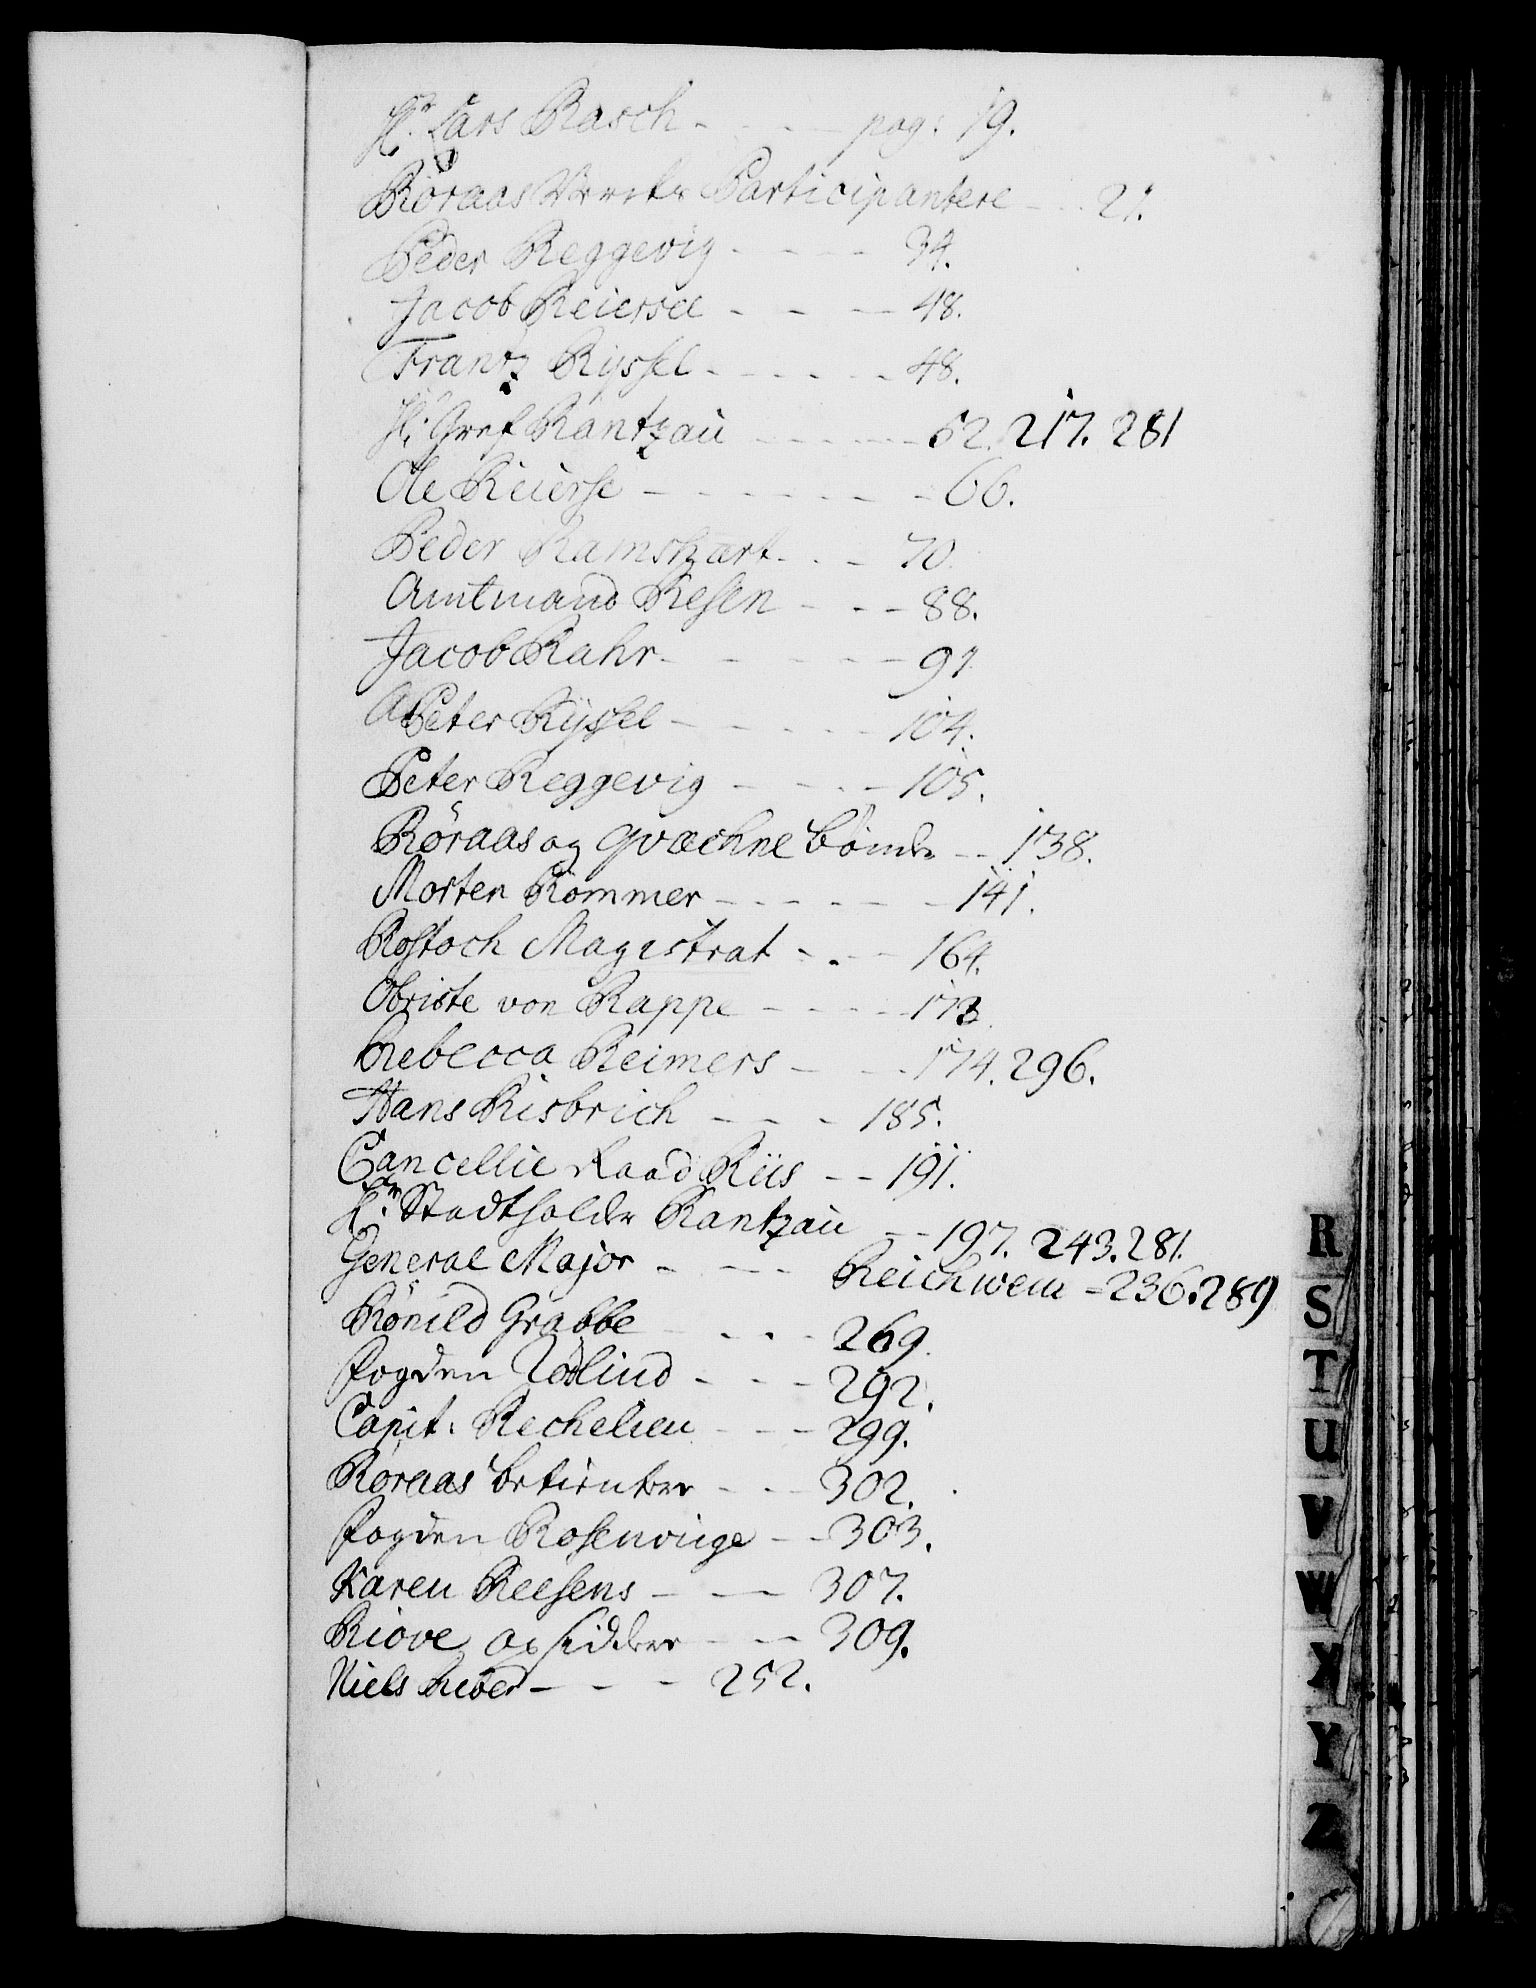 Hr. Lars Rasch - - - - pag: 19.
Røraas Værcks Participantere - - - 21.
Peder Reggevig - - - - - 34.
Jacob Reiersel - - - - 48.
Frantz Ryssel - - - - - - 48.
Hr. Gref Rantzau - - - - - - 52. 217. 281
Ole Reierse - - - - - - - - 66.
Peder Ramshart - - - 70.
Amtmand Resen - - - - 88.
Jacob Rahr - - - - - - 97.
Peter Ryssel - - - - - - 104.
Peter Reggevig - - - - - 105.
Røraas og qvæchne bønder - - 138.
Morten Rommer - - - - - - - 141.
Rostoch Magistrat - - - - 164.
Obriste von Rappe - - - - - 173.
Rebecca Reimers - - - - 174. 296.
Hans Risbrich - - - - 185.
Cancellie Raad Riis - - - 191.
Hr. Stadtholder Rantzau - - 197. 243. 281.
General Major - - - - Reichwein - 236. 289
Rønild Grabbe - - - - 269.
fogden Röslind - - - - 292.
Capit: Rechelieu - - - - 299.
Røraas betienter - - - 302.
fogden Rosenvinge - - - 303.
Karen Reesens - - - - 307.
Riove opsiddere - - - 309.
Niels Reber - - - - 252.
R
S
T
U
V
W
X
Y
Z